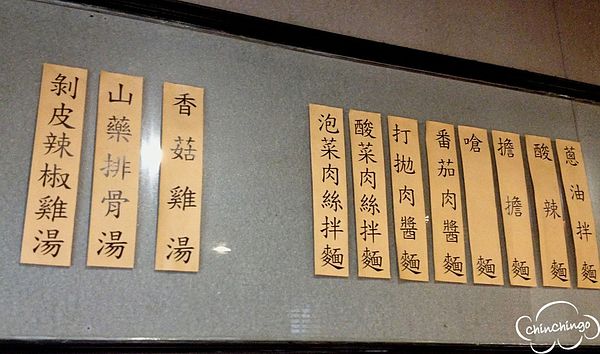 蔥油拌麵
酸辣麵
擔擔麵
嗆麵
番茄肉醬麵
打拋肉醬麵
酸菜肉絲拌麵
泡菜肉絲拌麵
香菇雞湯
山藥排骨湯
剝皮辣椒雞湯
chinchingo